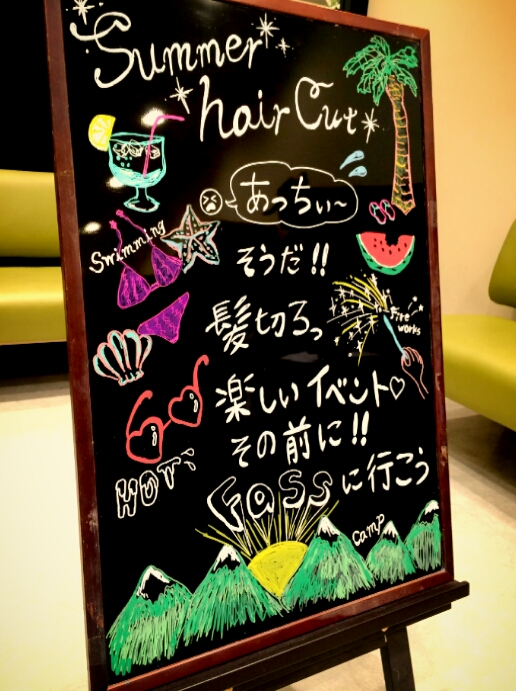 Summer
hair Cut
あっちぃ〜
Swimming
そうだ!!
髪切ろっ
Fire
works
楽しいイベント♡
その前に!!
HOT!
GaSSに行こう
camp